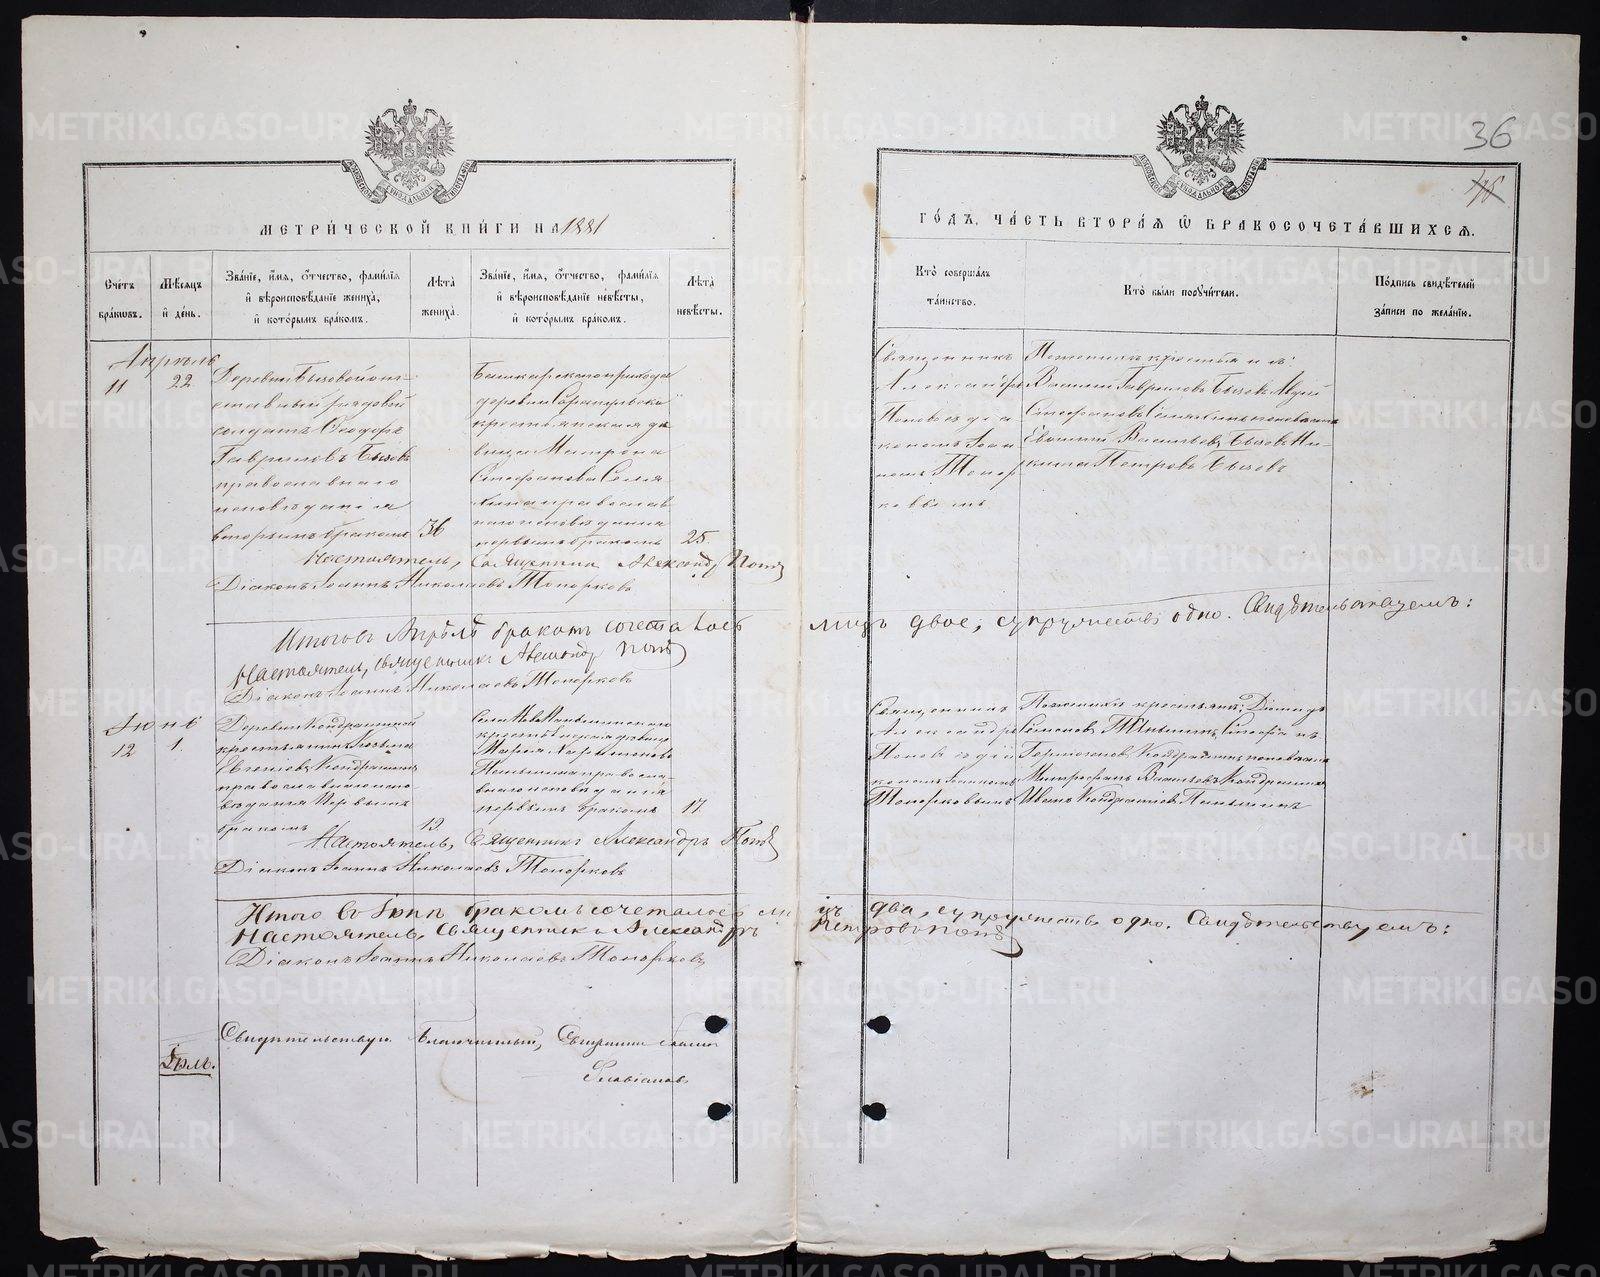 36
МЕТРИЧЕСКОЙ КНИГИ НА 1881
ГОДЪ, ЧАСТЬ ВТОРАЯ Ѡ БРАКОСОЧЕТАВШИХСЯ.
Счетъ браковъ.
Мѣсяцъ и день.
Званіе, имя, отчество, фамилія и вѣроисповѣданіе жениха, и которымъ бракомъ.
Лѣта жениха.
Званіе, имя, отчество, фамилія и вѣроисповѣданіе невѣсты, и которымъ бракомъ.
Лѣта невѣсты.
Кто совершалъ таинство.
Кто были поручители.
Подпись свидѣтелей записи по желанію.
Апрѣль
11 22
Деревни Бызовой от
ставный рядовой
солдатъ Ѳеодоръ
Гавриловъ Бызовъ
православнаго
исповѣданія
вторымъ бракомъ
36
деревни
крестьянская дѣ
вица Матрона
Стефанова
православ
наго исповѣданія
первымъ бракомъ
25
Священникъ
Александръ
Поповъ съ діа
кономъ Іоан
номъ Топор
ковымъ
Василій Гавриловъ Бызовъ
Стефановъ
Евѳимій Васильевъ Бызовъ Ни
кита Петровъ Бызовъ
Настоятель, Священникъ Александръ Поповъ
Діаконъ Іоаннъ Николаевъ Топорковъ
Итого въ Апрѣлѣ бракомъ сочеталось лицъ двое, супружествъ одно. Свидѣтельствуемъ:
Настоятель, священникъ Александръ Поповъ
Діаконъ Іоаннъ Николаевъ Топорковъ
Іюнь
12 1.
Деревни Кондрашиной
крестьянинъ Козьма
Евгеніевъ Кондрашинъ
православнаго испо
вѣданія Первымъ
бракомъ
19.
Села
крестьянская дѣвица
Марія Харитонова
Паньшина правосла-
внаго исповѣданія
первымъ бракомъ
17.
Священникъ
Александръ
Поповъ съ діа
кономъ Іоанномъ
Топорковымъ
Митрофанъ Васильевъ Кондрашинъ
Иванъ Кондратіевъ Паньшинъ
Настоятель, Священникъ Александръ Поповъ
Діаконъ Іоаннъ Николаевъ Топорковъ
Итого въ Іюнѣ бракомъ сочеталось лицъ два, супружествъ одно. Свидѣтельствуемъ:
Настоятель, Священникъ Александръ Петровъ Поповъ
Діаконъ Іоаннъ Николаевъ Топорковъ
Свидѣтельствую Благочинный, Священникъ Іоаннъ
METRIKI.GASO-URAL.RU